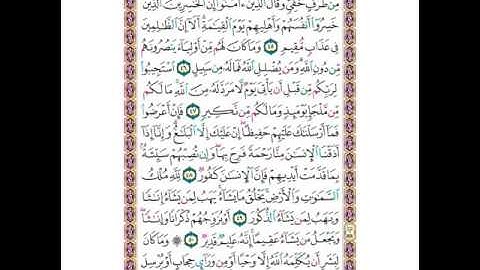 مِن طَرْفٍ خَفِيٍّ وَقَالَ الَّذِينَ ءَامَنُوٓا۟ إِنَّ الْخَٰسِرِينَ الَّذِينَ
خَسِرُوٓا۟ أَنفُسَهُمْ وَأَهْلِيهِمْ يَوْمَ الْقِيَٰمَةِ أَلَآ إِنَّ الظَّٰلِمِينَ
فِى عَذَابٍ مُّقِيمٍ ٤٥ وَمَا كَانَ لَهُم مِّنْ أَوْلِيَآءَ يَنصُرُونَهُم
مِّن دُونِ اللَّهِ وَمَن يُضْلِلِ اللَّهُ فَمَا لَهُۥ مِن سَبِيلٍ ٤٦ اسْتَجِيبُوا۟
لِرَبِّكُم مِّن قَبْلِ أَن يَأْتِىَ يَوْمٌ لَّا مَرَدَّ لَهُۥ مِنَ اللَّهِ مَا لَكُم
مِّن مَّلْجَإٍ يَوْمَئِذٍ وَمَا لَكُم مِّن نَّكِيرٍ ٤٧ فَإِنْ أَعْرَضُوا۟
فَمَآ أَرْسَلْنَٰكَ عَلَيْهِمْ حَفِيظًا إِنْ عَلَيْكَ إِلَّا الْبَلَٰغُ وَإِنَّآ إِذَآ
أَذَقْنَا الْإِنسَٰنَ مِنَّا رَحْمَةً فَرِحَ بِهَا وَإِن تُصِبْهُمْ سَيِّئَةٌۢ
بِمَا قَدَّمَتْ أَيْدِيهِمْ فَإِنَّ الْإِنسَٰنَ كَفُورٌ ٤٨ لِّلَّهِ مُلْكُ
السَّمَٰوَٰتِ وَالْأَرْضِ يَخْلُقُ مَا يَشَآءُ يَهَبُ لِمَن يَشَآءُ إِنَٰثًا
وَيَهَبُ لِمَن يَشَآءُ الذُّكُورَ ٤٩ أَوْ يُزَوِّجُهُمْ ذُكْرَانًا وَإِنَٰثًا
وَيَجْعَلُ مَن يَشَآءُ عَقِيمًا إِنَّهُۥ عَلِيمٌ قَدِيرٌ ٥٠ ۞ وَمَا كَانَ
لِبَشَرٍ أَن يُكَلِّمَهُ اللَّهُ إِلَّا وَحْيًا أَوْ مِن وَرَآئِ حِجَابٍ أَوْ يُرْسِلَ